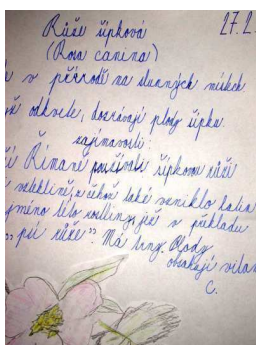 27.2
Růže šípková
(Rosa canina)
v přírodě na slunných místech
odkvete, dozrávají plody šípku.
zajímavosti:
Římané používali šípkovou růži
vzteklině, z čehož také vzniklo latin
jméno této rostliny, jež v překladu
„psí růže". Má hny. Plody
obsahují vitam
C.